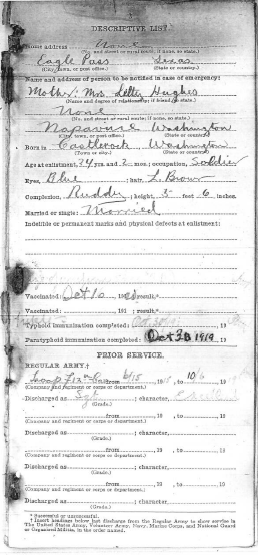 DESCRIPTIVE LIST.
Home address None
(No. and street or rural route; if none, so state.)
Eagle Pass Texas
(City, town, or post office.) (State or country.)
Name and address of person to be notified in case of emergency:
Mother: Mrs. Hughes
(Name and degree of relationship; if friend, so state.)
None
(No. and street or rural route; if none, so state.)
Napavine Washington
(City, town, or post office.) (State or country.)
Born in Castlerock Washington
(Town or city.) (State or country.)
Age at enlistment, 34 yrs and 2 mos.; occupation, Soldier
Eyes, Blue ; hair, L. Brown
Complexion, Ruddy ; height, 5 feet 6 inches.
Married or single: Married
Indelible or permanent marks and physical defects at enlistment:
Vaccinated: Oct 10 result*
Vaccinated: 191 ; result*
Typhoid immunization completed: 19
Paratyphoid immunization completed: Oct 28 1919 19
PRIOR SERVICE.
REGULAR ARMY.†
Troop from 6/15 to 10/6
(Company and regiment or corps or department.)
Discharged as Sgt ; character,
(Grade.)
from 19 , to 19
(Company and regiment or corps or department.)
Discharged as ; character,
(Grade.)
from 19 , to 19
(Company and regiment or corps or department.)
Discharged as ; character,
(Grade.)
from 19 , to 19
(Company and regiment or corps or department.)
Discharged as ; character,
(Grade.)
* Successful or unsuccessful.
† Insert headings below last discharge from the Regular Army to show service in
The United States Army, Volunteer Army, Navy, Marine Corps, and National Guard
or Organized Militia, in the order named.